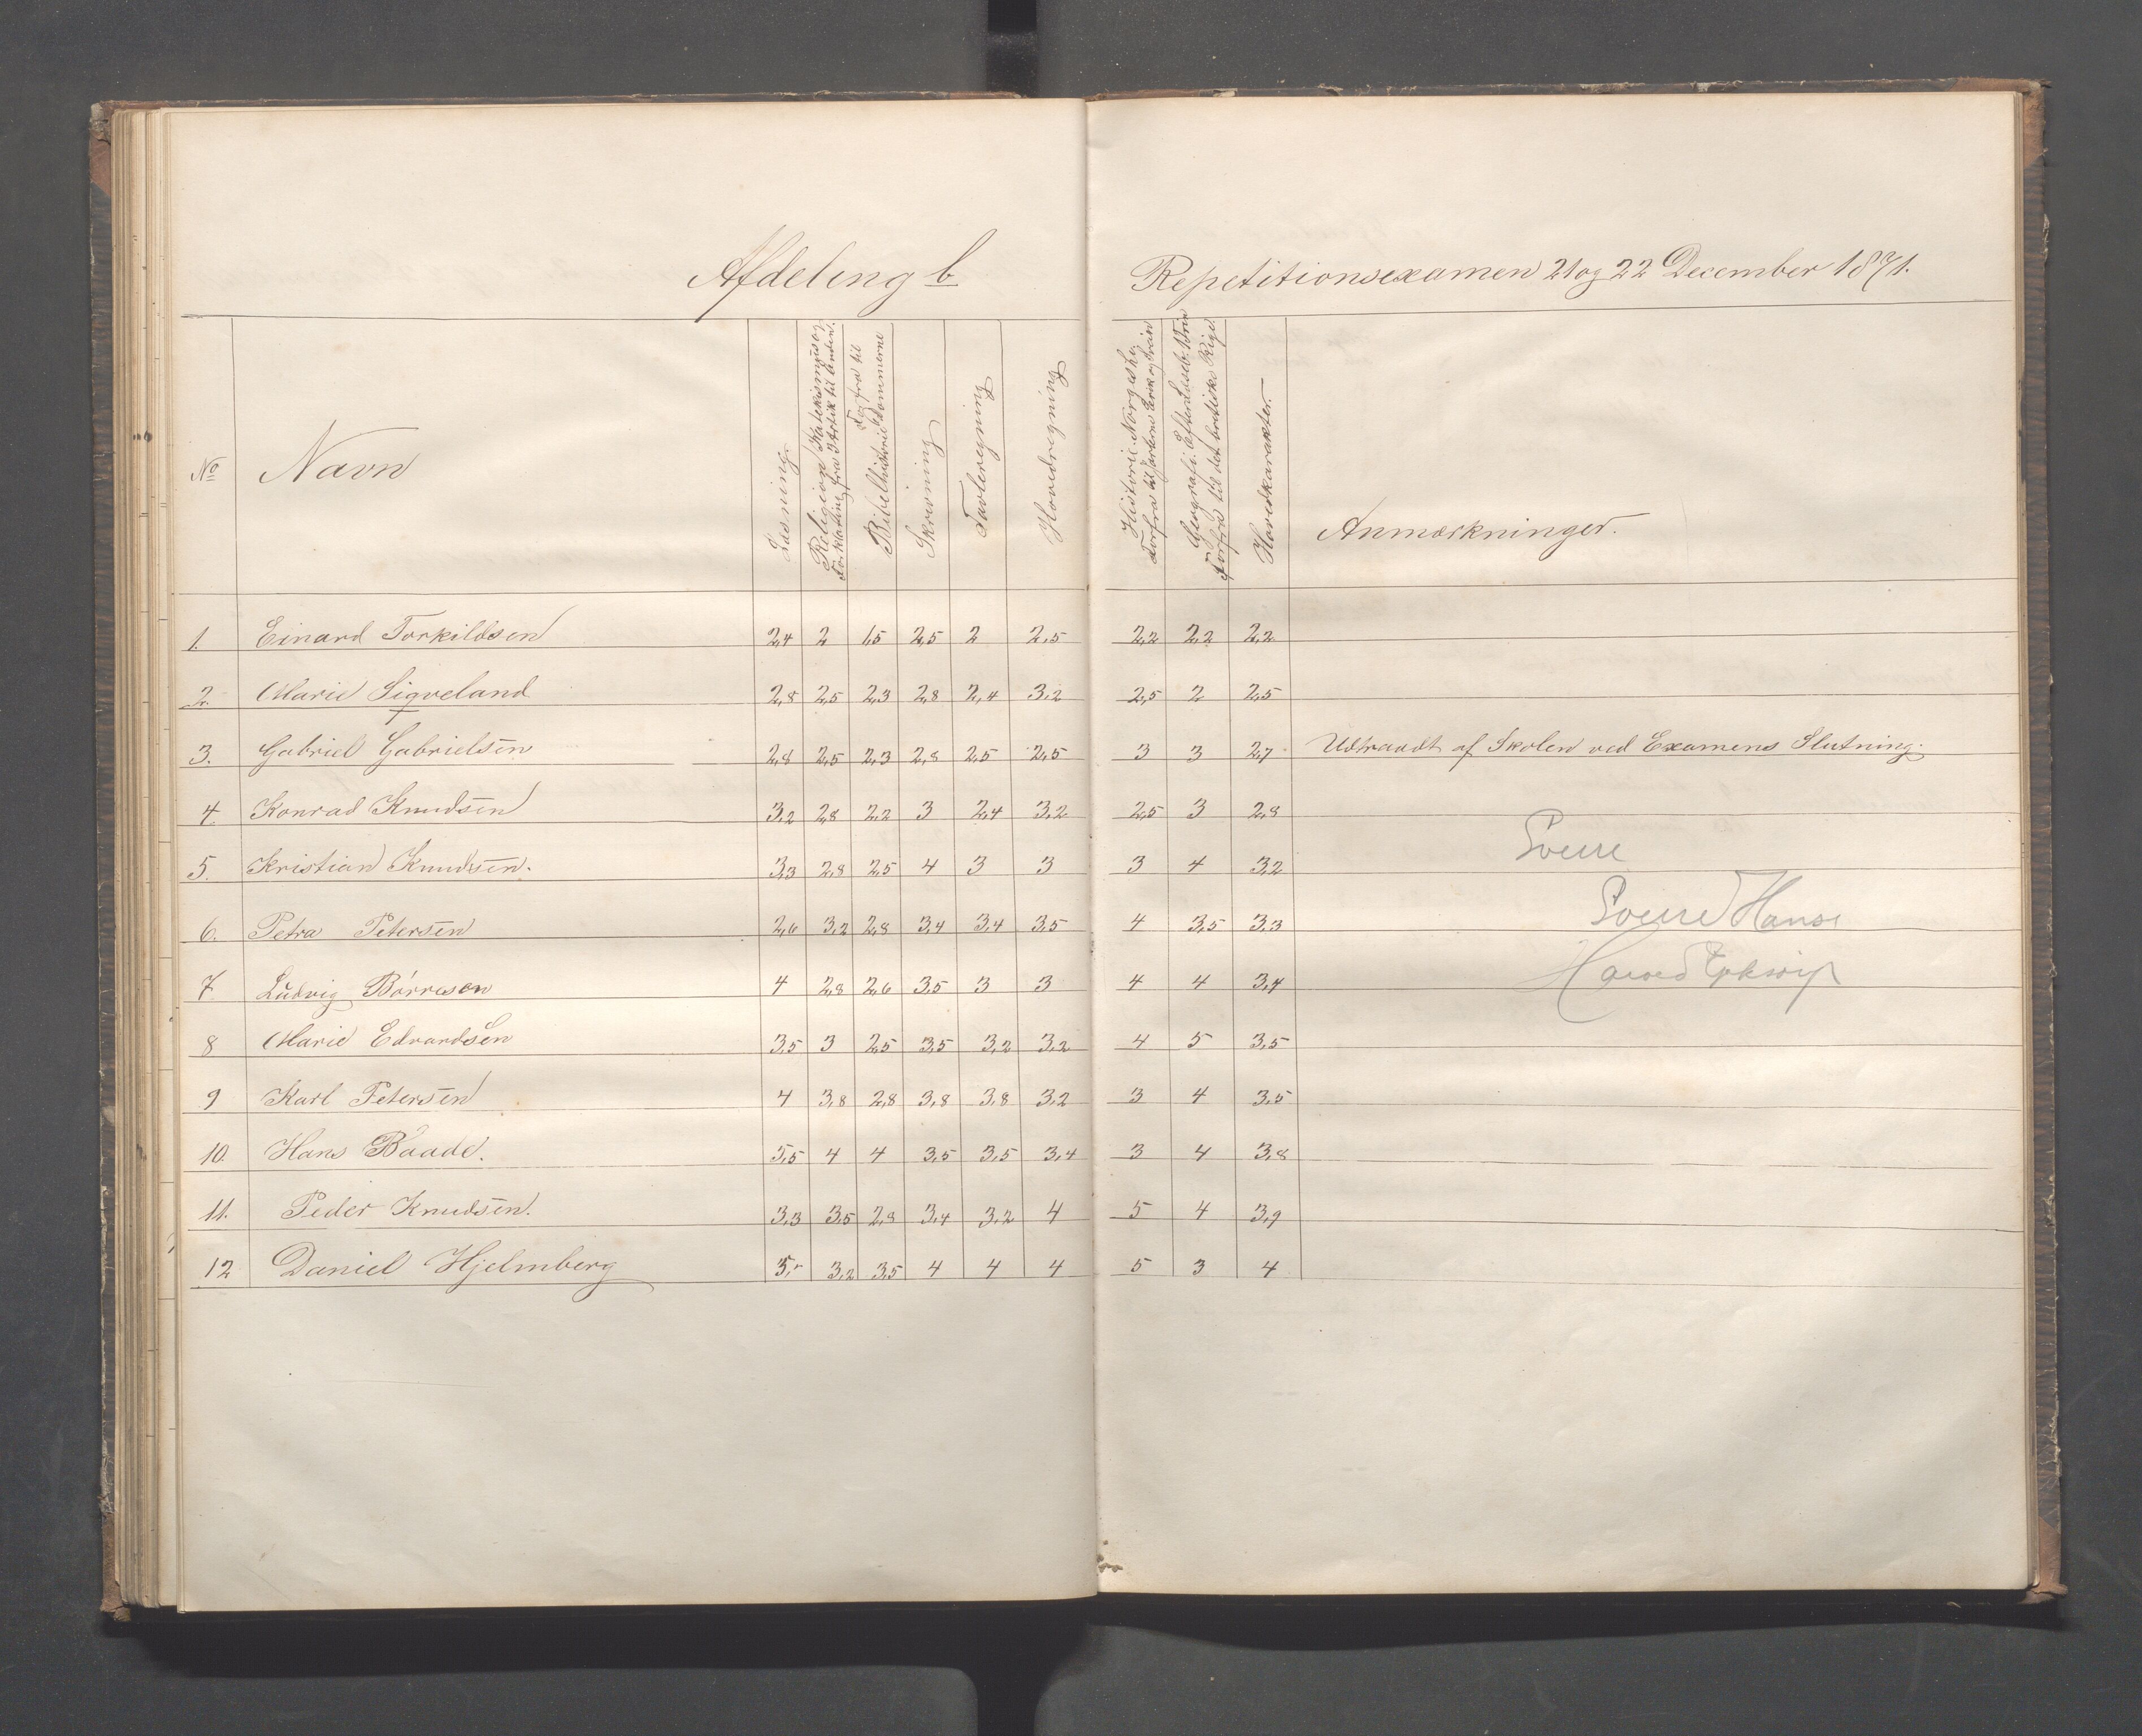 Afdeling b
Repetitionsexamen 21 og 22 December 1871.
No Navn Læsning Religion Katekismus og Forklaring fra 1 Artik til Enden. Bibelhistorie Forfra til Dommerne Skrivning Tavleregning Hovedregning Historie: Norges Forfra til Jarlerne Erik og Svein Geografi: Efter Læseb. Forfra til det britiske Rige Hovedkarakter. Anmærkninger.
1. Einard Torkildsen 2,4 2 1,5 2,5 2 2,5 2,2 2,2 2,2
2. Marie Siqveland 2,8 2,5 2,3 2,8 2,4 3,2 2,5 2 2,5
3. Gabriel Gabrielsen 2,8 2,5 2,3 2,8 2,5 2,5 3 3 2,7 Udtraadt af Skolen ved Examens Slutning.
4. Konrad Knudsen 3,2 2,8 2,2 3 2,4 3,2 2,5 3 2,8
5. Kristian Knudsen. 3,3 2,8 2,5 4 3 3 3 4 3,2
Sverre
6. Petra Petersen 2,6 3,2 2,8 3,4 3,4 3,5 4 3,5 3,3
Sverre Hans
7. Ludvig Börresen 4 2,8 2,6 3,5 3 3 4 4 3,4
8 Marie Edvardsen 3,5 3 2,5 3,5 3,2 3,2 4 5 3,5
9 Karl Petersen 4 3,8 2,8 3,8 3,8 3,2 3 4 3,5
10. Hans Baade. 5,5 4 4 3,5 3,5 3,4 3 4 3,8
11. Peder Knudsen. 3,3 3,5 2,8 3,4 3,2 4 5 4 3,9
12 Daniel Hjelmberg 3,2 3,5 4 4 4 5 3 4